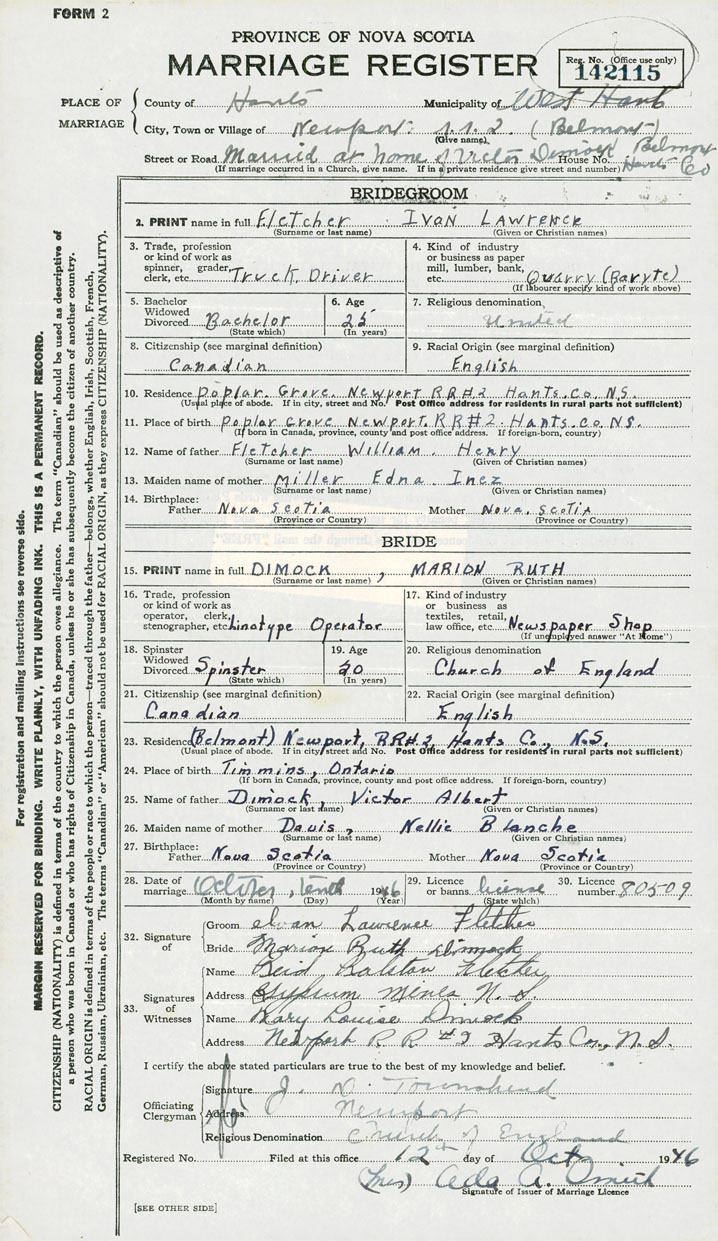 FORM 2
PROVINCE OF NOVA SCOTIA
MARRIAGE REGISTER
Reg. No. (Office use only)
142115
PLACE OF MARRIAGE
County of Hants Municipality of West Hants
City, Town or Village of Newport: r.r.2. (Belmont)
(Give name)
Street or Road Married at home of Victor Dimock House No. Belmont Hants Co
(If marriage occurred in a Church, give name. If in a private residence give street and number)
BRIDEGROOM
2. PRINT name in full Fletcher Ivan Lawrence
(Surname or last name) (Given or Christian names)
3. Trade, profession or kind of work as spinner, grader, clerk, etc. Truck Driver
4. Kind of industry or business as paper mill, lumber, bank, etc. Quarry (Baryte)
(If labourer specify kind of work above)
5. Bachelor Widowed Divorced Bachelor
(State which)
6. Age 25
(In years)
7. Religious denomination United
8. Citizenship (see marginal definition) Canadian
9. Racial Origin (see marginal definition) English
10. Residence Poplar Grove. Newport RR#2 Hants. Co. N.S.
(Usual place of abode. If in city, street and No. Post Office address for residents in rural parts not sufficient)
11. Place of birth Poplar Grove Newport. RR#2. Hants. Co. N.S.
(If born in Canada, province, county and post office address. If foreign-born, country)
12. Name of father Fletcher William Henry
(Surname or last name) (Given or Christian names)
13. Maiden name of mother Miller Edna Inez
(Surname or last name) (Given or Christian names)
14. Birthplace: Father Nova Scotia Mother Nova Scotia
(Province or Country) (Province or Country)
BRIDE
15. PRINT name in full DIMOCK, MARION RUTH
(Surname or last name) (Given or Christian names)
16. Trade, profession or kind of work as operator, clerk, stenographer, etc. Linotype Operator
17. Kind of industry or business as textiles, retail, law office, etc. Newspaper Shop
(If unemployed answer "At Home")
18. Spinster Widowed Divorced Spinster
(State which)
19. Age 20
(In years)
20. Religious denomination Church of England
21. Citizenship (see marginal definition) Canadian
22. Racial Origin (see marginal definition) English
23. Residence (Belmont) Newport, RR#2, Hants Co., N.S.
(Usual place of abode. If in city, street and No. Post Office address for residents in rural parts not sufficient)
24. Place of birth Timmins, Ontario
(If born in Canada, province, county and post office address. If foreign-born, country)
25. Name of father Dimock, Victor Albert
(Surname or last name) (Given or Christian names)
26. Maiden name of mother Davis, Nellie Blanche
(Surname or last name) (Given or Christian names)
27. Birthplace: Father Nova Scotia Mother Nova Scotia
(Province or Country) (Province or Country)
28. Date of marriage October, tenth 1946
(Month by name) (Day) (Year)
29. Licence or banns license
(State which)
30. Licence number 80509
32. Signature of
Groom Ivan Lawrence Fletcher
Bride Marion Ruth Dimock
33. Signatures of Witnesses
Name Reid Ralston Fletcher
Address Gypsum Mines N.S.
Name Mary Louise Dimock
Address Newport R R #2 Hants Co., N.S.
I certify the above stated particulars are true to the best of my knowledge and belief.
Officiating Clergyman
Signature J. N. Townshend
Address Newport
Religious Denomination Church of England
Registered No. Filed at this office 12th day of Oct 1946
(Mrs) Ada A. Smith
Signature of Issuer of Marriage Licence
[SEE OTHER SIDE]
For registration and mailing instructions see reverse side.
MARGIN RESERVED FOR BINDING. WRITE PLAINLY, WITH UNFADING INK. THIS IS A PERMANENT RECORD.
CITIZENSHIP (NATIONALITY) is defined in terms of the country to which the person owes allegiance. The term "Canadian" should be used as descriptive of
a person who was born in Canada or who has rights of Citizenship in Canada, unless he or she has subsequently become the citizen of another country.
RACIAL ORIGIN is defined in terms of the people or race to which the person—traced through the father—belongs, whether English, Irish, Scottish, French,
German, Russian, Ukrainian, etc. The terms "Canadian" or "American" should not be used for RACIAL ORIGIN, as they express CITIZENSHIP (NATIONALITY).